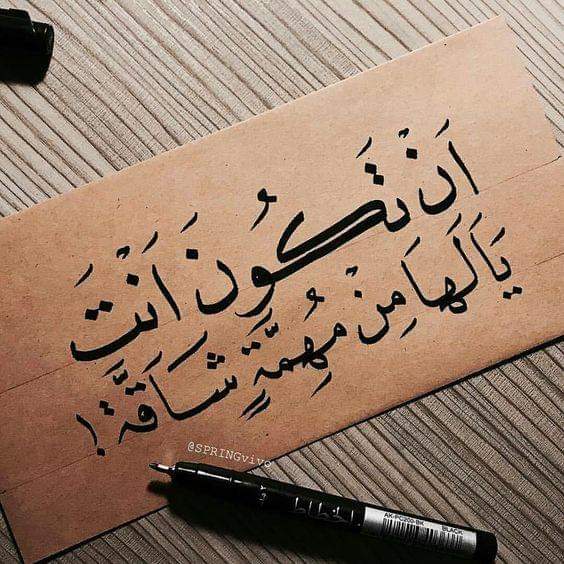 أَنْ تَكُونَ أَنْتَ
يَالَهَا مِنْ مُهِمَّةٍ شَاقَّة!
@SPRINGvivo
الخطاط
BLACK